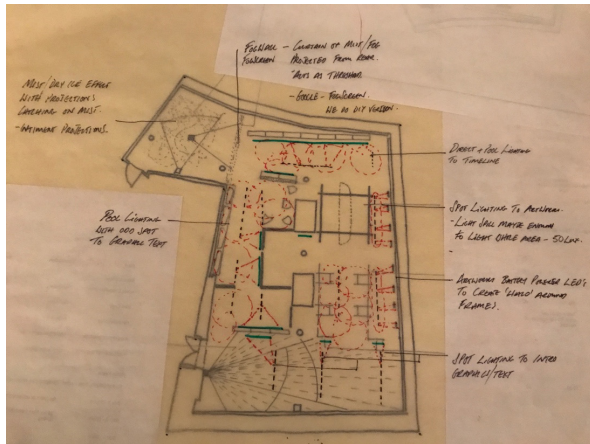 FOGWALL – CURTAIN OF MIST/FOG
FOGSCREEN PROJECTED FROM REAR.
"ACTS AS THRESHOLD
- GOOGLE - FOGSCREEN.
WE DO DIY VERSION.
MIST/DRY ICE EFFECT
WITH PROJECTIONS
CATCHING ON MIST.
PROJECTIONS.
DIRECT + POOL LIGHTING
TO TIMELINE
POOL LIGHTING
WITH ODD SPOT
TO GRAPHIC TEXT
SPOT LIGHTING TO ARTWORK.
- LIGHT SPILL MAYBE ENOUGH
TO LIGHT AREA - 50 LUX.
ARTWORKS BATTERY POWERED LED's
TO CREATE 'HALO' AROUND
FRAMES.
SPOT LIGHTING TO INTRO
GRAPHIC/TEXT